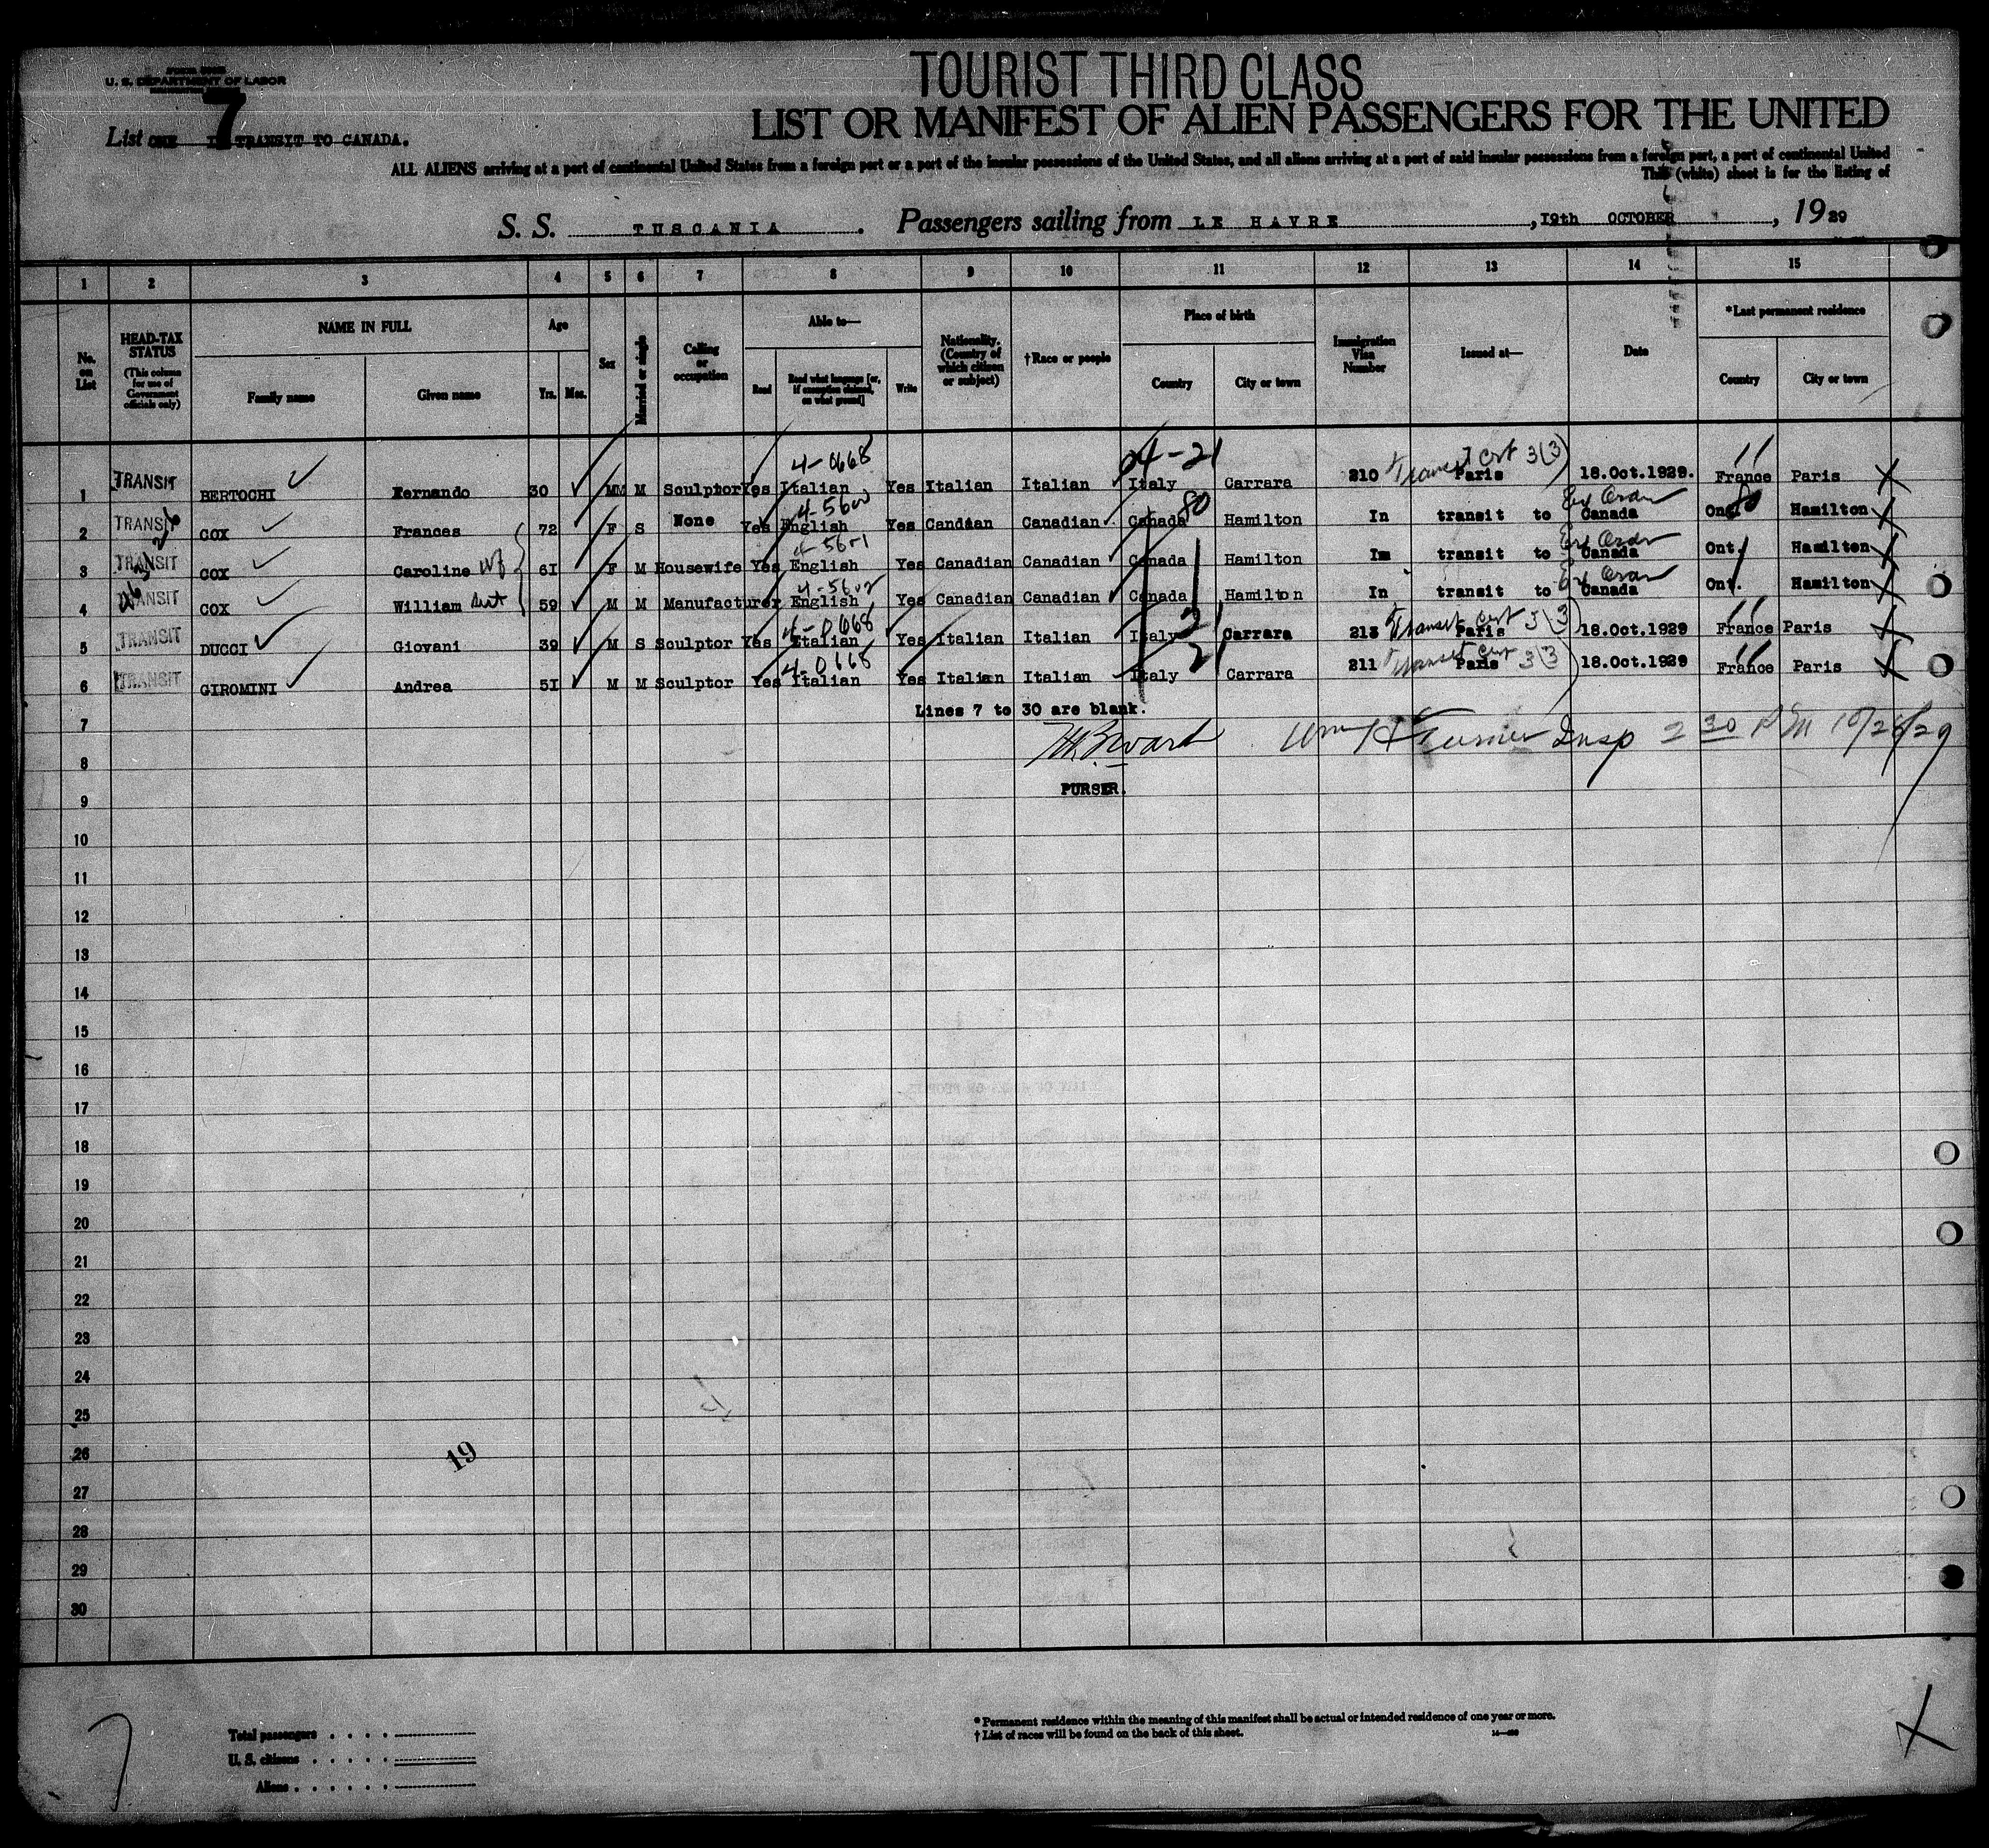 TOURIST THIRD CLASS
U. S. DEPARTMENT OF LABOR
7
LIST OR MANIFEST OF ALIEN PASSENGERS FOR THE UNITED
List ONE IN TRANSIT TO CANADA.
ALL ALIENS arriving at a port of continental United States from a foreign port or a port of the insular possessions of the United States, and all aliens arriving at a port of said insular possessions from a foreign port, a port of continental United
This (white) sheet is for the listing of
S. S. TUSCANIA. Passengers sailing from LE HAVRE, 19th OCTOBER, 1929
1 2 3 4 5 6 7 8 9 10 11 12 13 14 15
No. on List
HEAD-TAX STATUS (This column for use of Government officials only)
NAME IN FULL
Family name
Given name
Age
Yrs. Mos.
Sex
Married or single
Calling or occupation
Able to—
Read
Read what language [or, if exemption claimed, on what ground]
Write
Nationality. (Country of which citizen or subject)
†Race or people
Place of birth
Country
City or town
Immigration Visa Number
Issued at—
Date
*Last permanent residence
Country
City or town
4-0668 04-21 Transit Cert 3(3) 11
1 TRANSIT BERTOCHI Fernando 30 MM M Sculptor Yes Italian Yes Italian Italian Italy Carrara 210 Paris 18.Oct.1929. France Paris X
4-5600 80
2 TRANSIT COX Frances 72 F S None Yes English Yes Candian Canadian Canada Hamilton In transit to Canada Ont. 80 Hamilton X
4-5601
3 TRANSIT COX Caroline Wf 61 F M Housewife Yes English Yes Canadian Canadian Canada Hamilton Im transit to Canada Ont. Hamilton X
4-5602
4 TRANSIT COX William 59 M M Manufacturer English Yes Canadian Canadian Canada Hamilton In transit to Canada Ont. Hamilton X
4-0668 21 Transit Cert 3(3) 11
5 TRANSIT DUCCI Giovani 39 M S Sculptor Yes Italian Yes Italian Italian Italy Carrara 213 Paris 18.Oct.1929 France Paris X
4-0668 21 Transit Cert 3(3) 11
6 TRANSIT GIROMINI Andrea 51 M M Sculptor Yes Italian Yes Italian Italian Italy Carrara 211 Paris 18.Oct.1929 France Paris X
Lines 7 to 30 are blank.
7
Wm H Turner Insp 2 30 PM 10/28/29
8
PURSER.
9
10
11
12
13
14
15
16
17
18
19
20
21
22
23
24
25
26
19
27
28
29
30
Total passengers
U. S. citizens
Aliens
* Permanent residence within the meaning of this manifest shall be actual or intended residence of one year or more.
† List of races will be found on the back of this sheet.
7
X